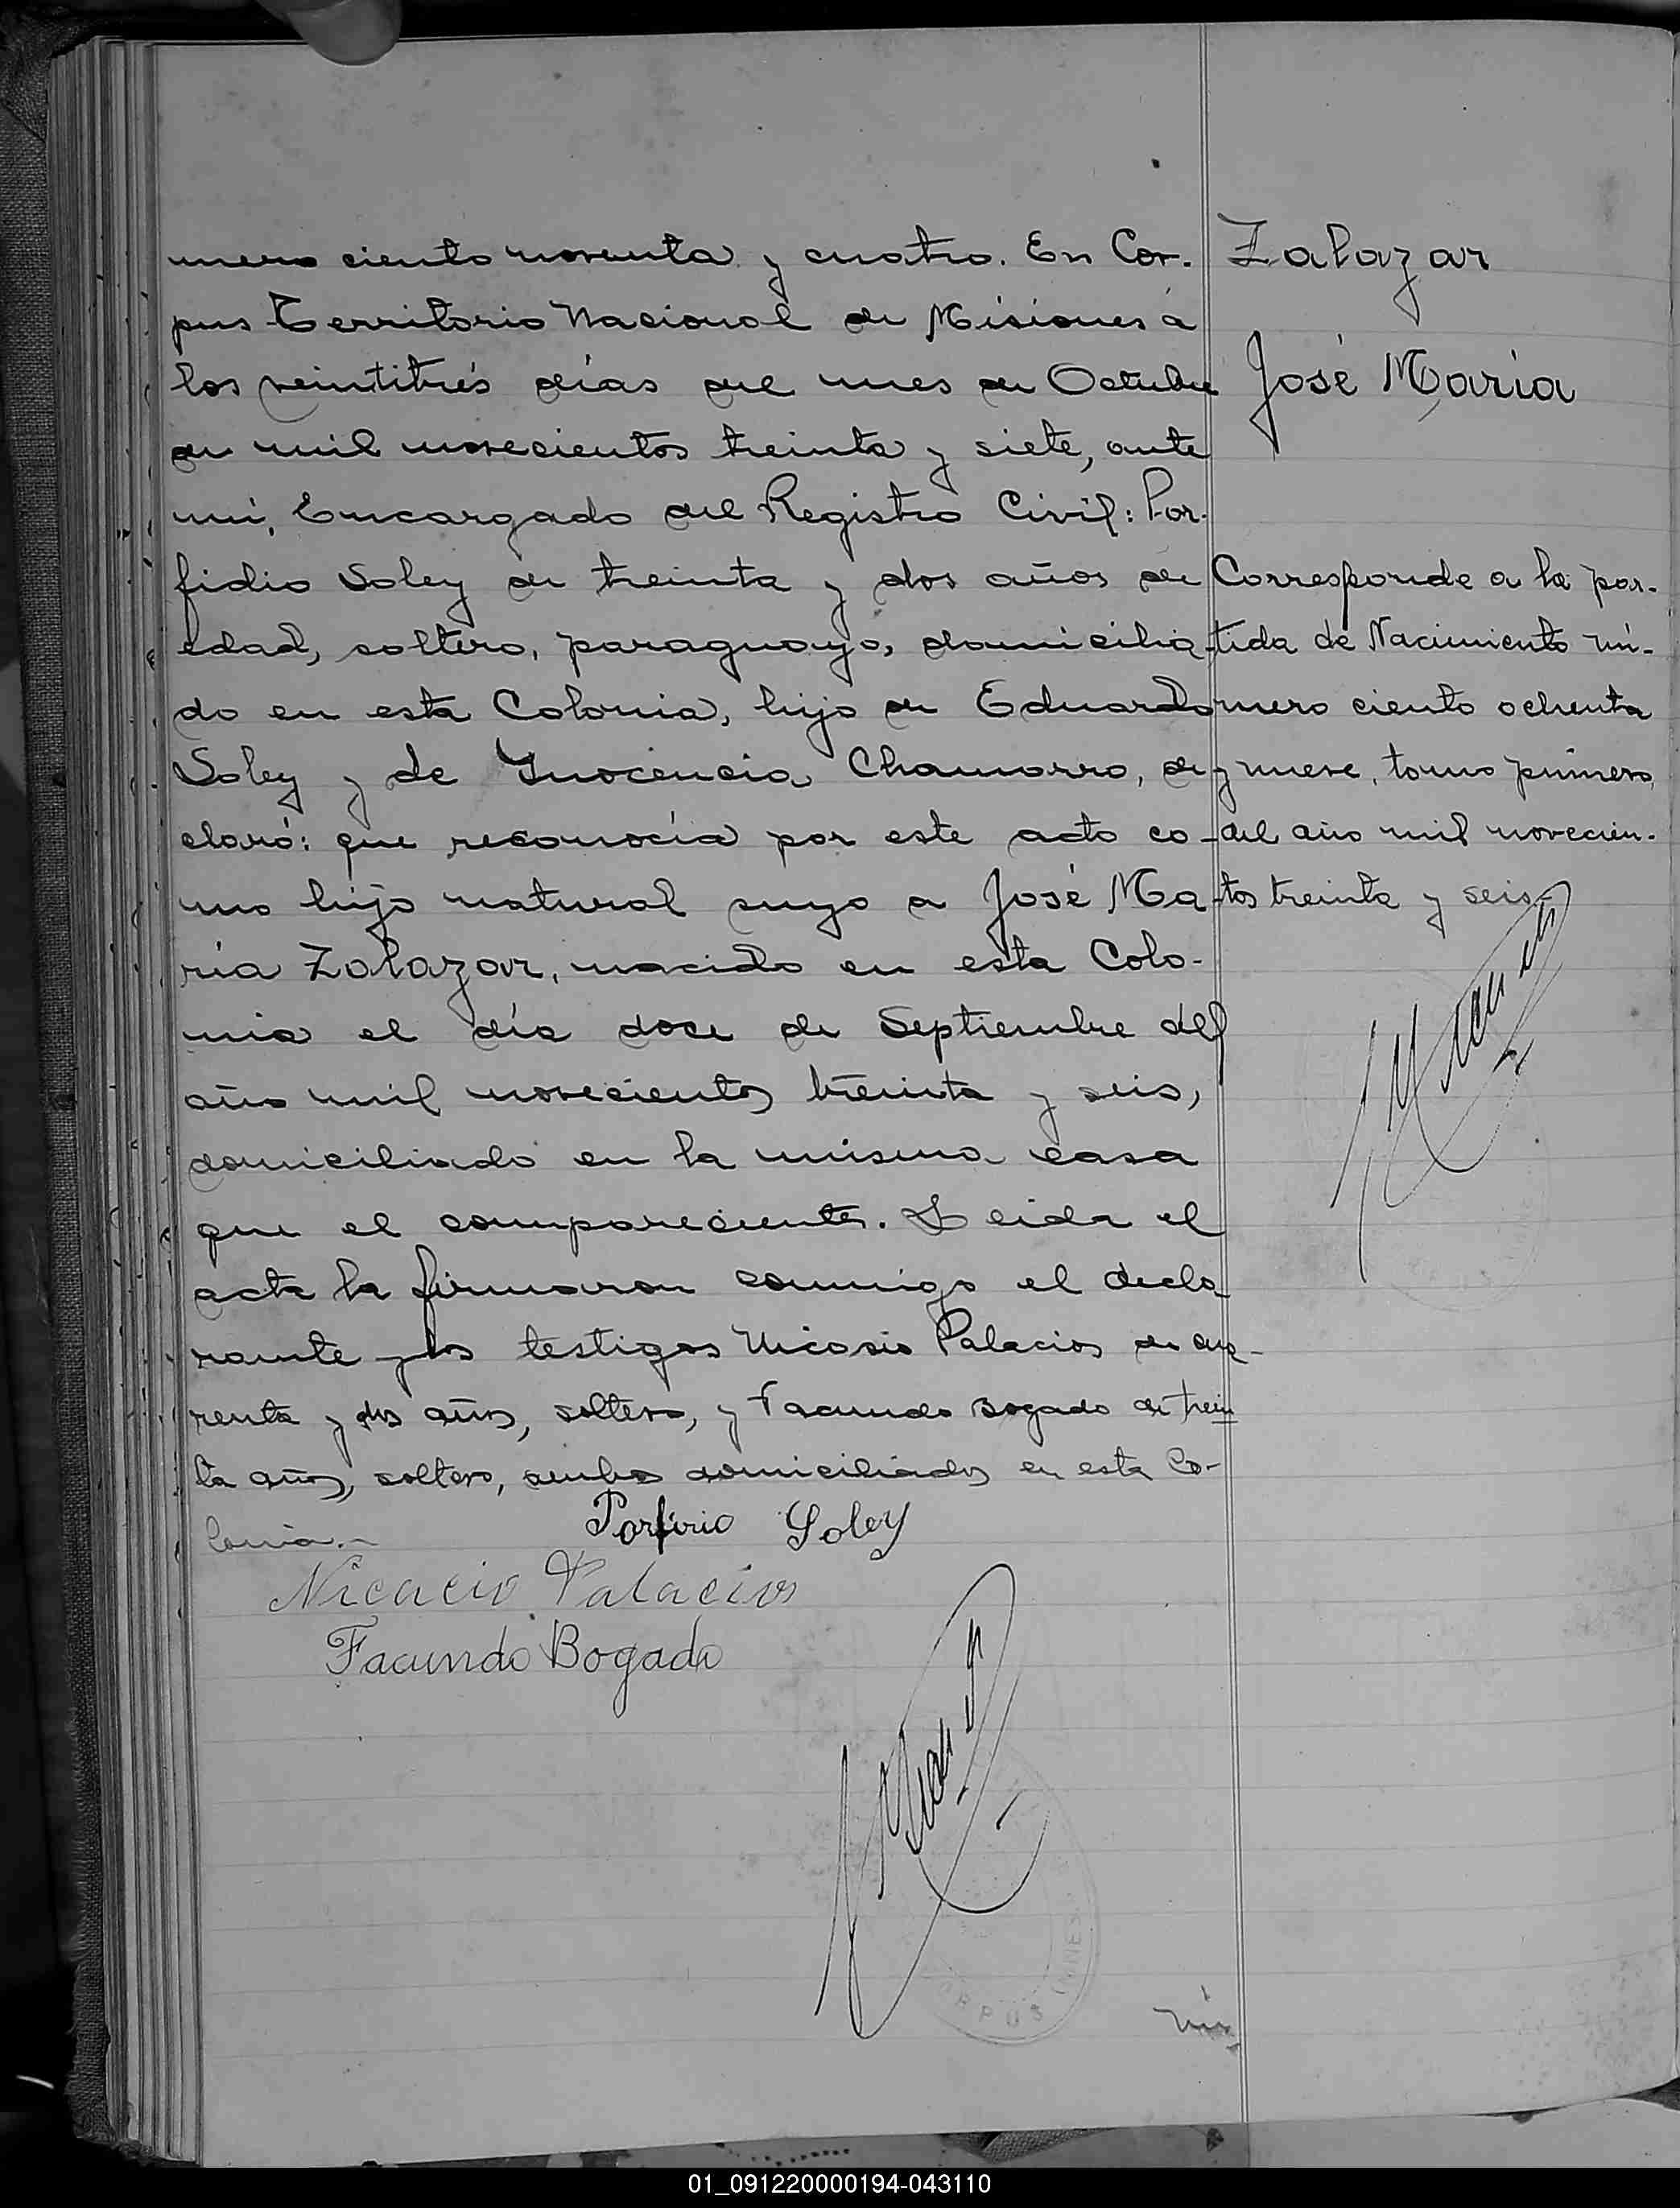 mero ciento noventa y cuatro. En Cor-
pus Territorio Nacional de Misiones á
los veintitrés días del mes de Octubre
de mil novecientos treinta y siete, ante
mí, Encargado del Registro Civil: Por-
fidio Soley de treinta y dos años de
edad, soltero, paraguayo, domicilia-
do en esta Colonia, hijo de Eduardo
Soley y de Inocencia Chamorro, de-
claró: que reconocía por este acto co-
mo hijo natural suyo a José Ma-
ría Zalazar, nacido en esta Colo-
nia el día doce de Septiembre del
año mil novecientos treinta y seis,
domiciliado en la misma casa
que el compareciente. Leida el
acta la firmaron conmigo el decla-
rante y los testigos Nicasio Palacios de cua-
renta y dos años, soltero, y Facundo Bogado de trein
ta años, soltero, ambos domiciliados en esta Co-
lonia.-
Porfirio Soley
Nicacio Palacios
Facundo Bogado
nú
Zalazar
José María
Corresponde a la par-
tida de Nacimiento nú-
mero ciento ochenta
y nueve, tomo primero,
del año mil novecien-
tos treinta y seis.-
01_091220000194-043110